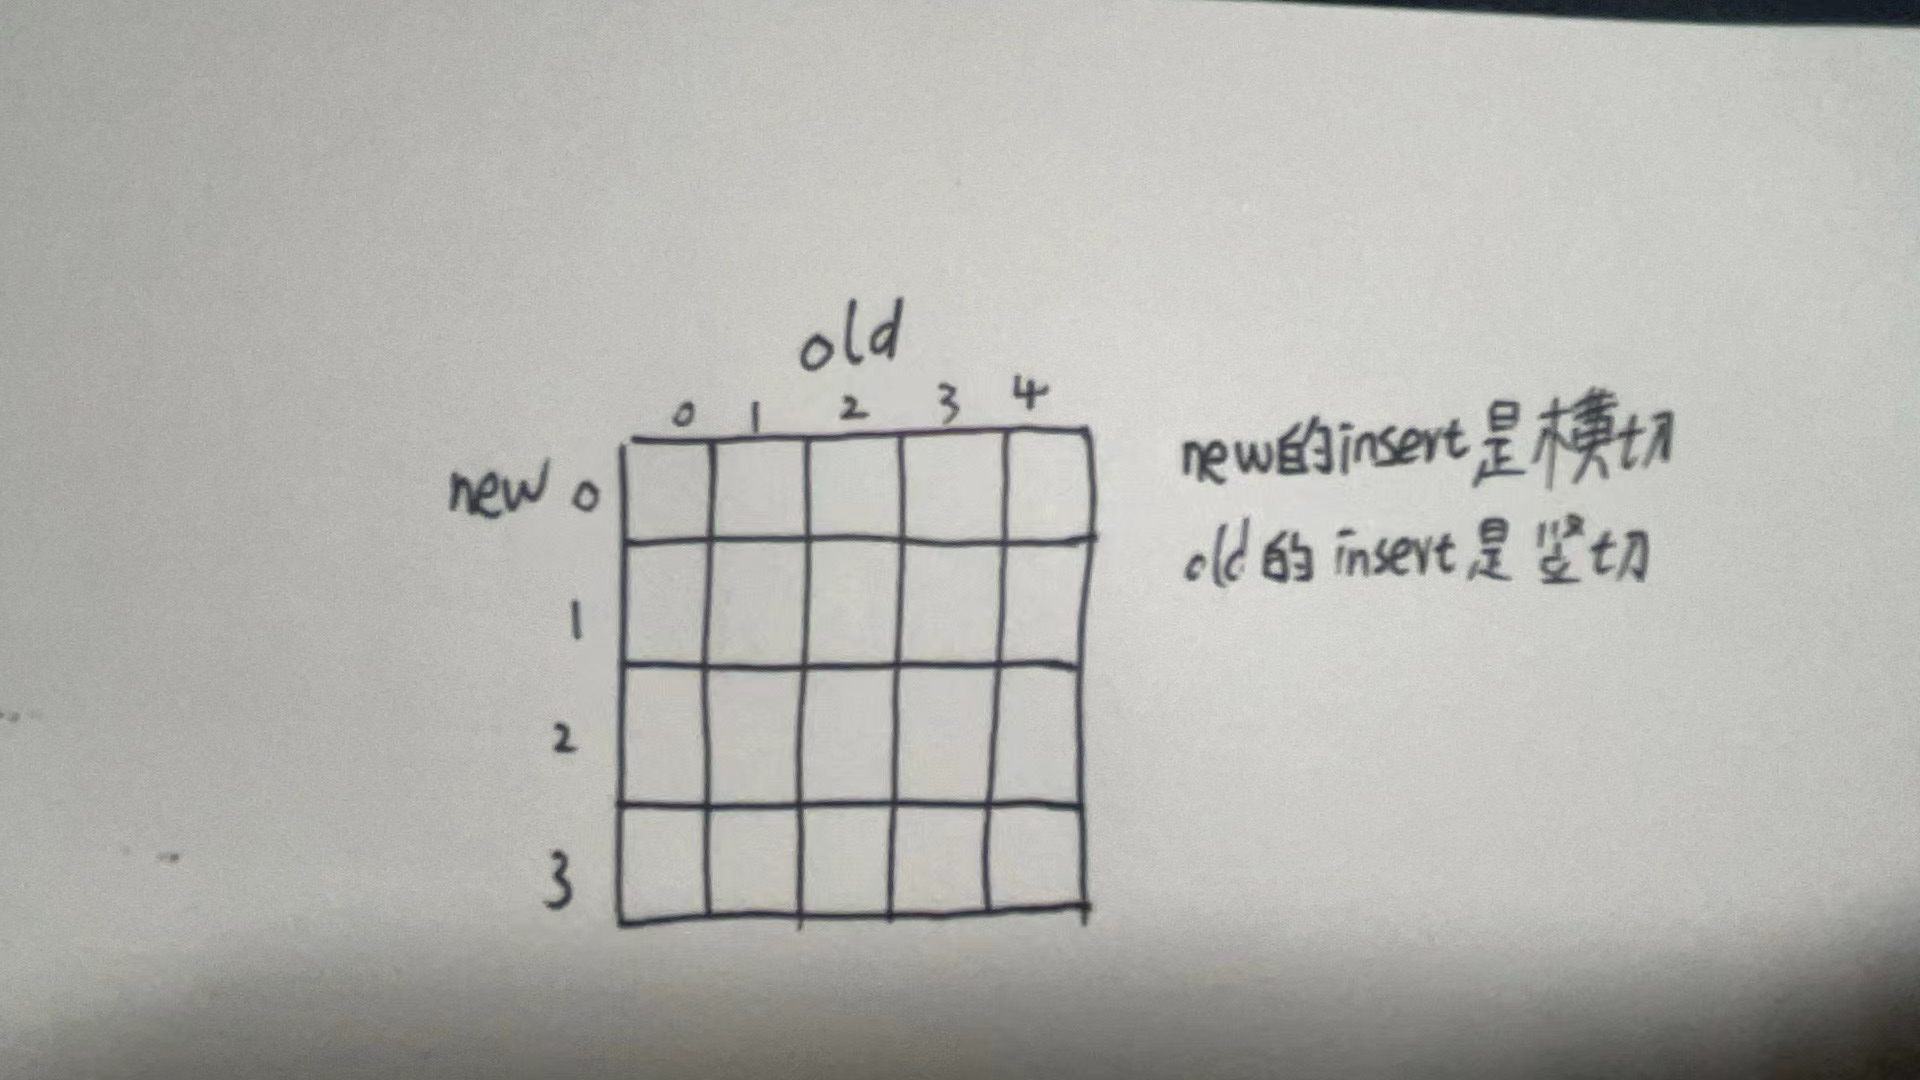 old
0 1 2 3 4
new 0
1
2
3
new的insert是横切
old的insert是竖切